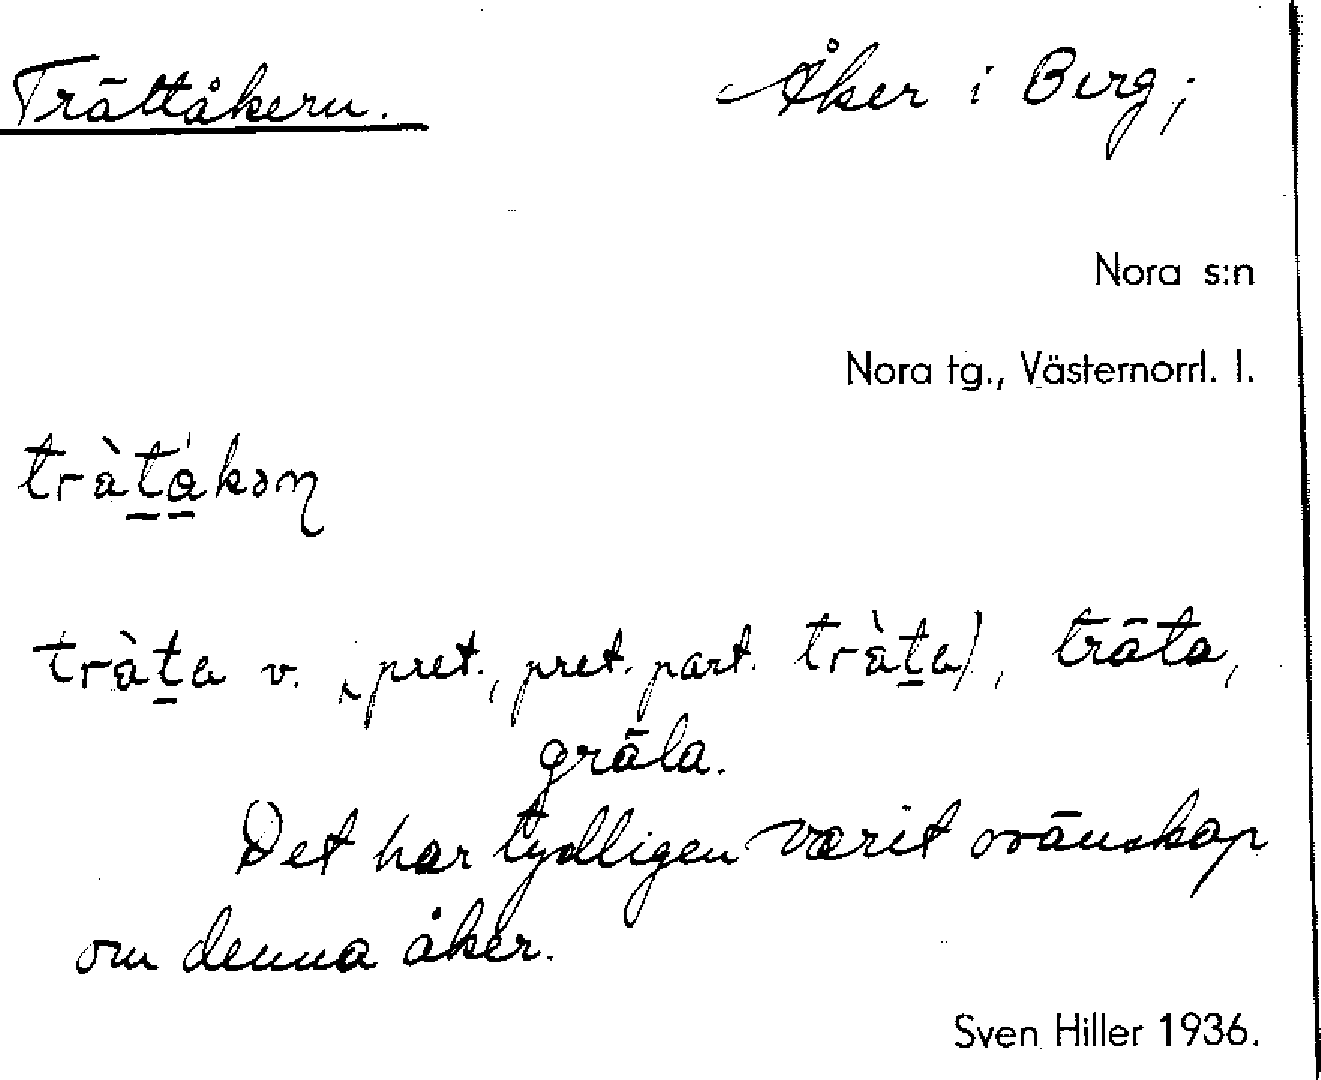 Trättåkern. Åker i Berg;
Nora s:n
Nora tg., Västernorrl. l.
trà̀tákəɳ
träta v. (pret., pret. part. träta), träta,
gräla.
Det har tydligen varit ovänskap
om denna åker.
Sven Hiller 1936.